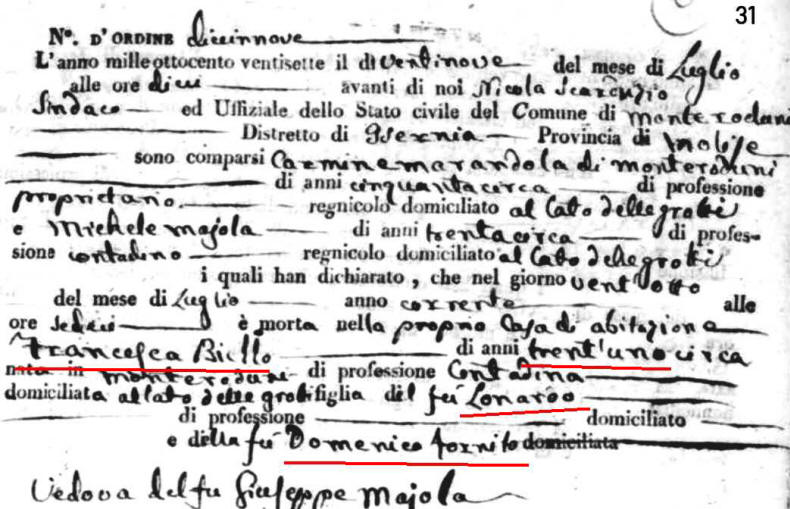 31
Nº. D'ORDINE diciinnove
L'anno mille ottocento ventisette il di ventinove del mese di Luglio
alle ore dieci avanti di noi Nicola Scarduzio
Sindaco ed Uffiziale dello Stato civile del Comune di monteroduni
Distretto di Isernia Provincia di molise
sono comparsi Carmine marandola di monteroduni
di anni cinquanta circa di professione
proprietario regnicolo domiciliato al Lato delle grotti
e Michele majola di anni trenta circa di profes-
sione contadino regnicolo domiciliato al Lato delle grotti
i quali han dichiarato, che nel giorno vent'otto
del mese di Luglio anno corrente alle
ore sedici è morta nella propria Casa di abitazione
Francesca Biello di anni trent'uno circa
nata in monteroduni di professione Contadina
domiciliata al lato delle groti figlia del fu Lonardo
di professione domiciliato
e della fu Domenica domiciliata
Vedova del fu Giuseppe majola